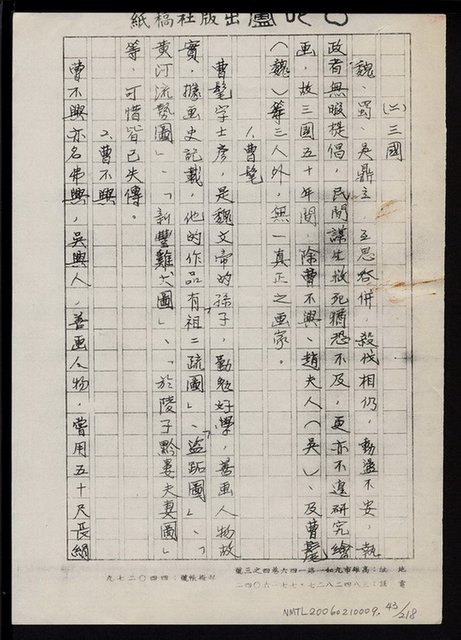 出版社稿紙
(二)三國
魏、蜀、吳鼎立，互思吞併，殺伐相仍，動盪不安，執
政者無暇提倡，民間謀生救死猶恐不及，更亦不遑研究繪
画，故三國五十年間，除曹不興、趙夫人(吳)、及曹髦
(魏)等三人外，無一真正之画家。
1.曹髦
曹髦字士彥，是魏文帝的孫子，勤勉好學，善画人物故
實，據画史記載，他的作品有「祖二疏圖」、「盜跖圖」、「
黃河流勢圖」、「新豐雞犬圖」、「於陵子黔婁夫妻圖」
等，可惜皆已失傳。
2.曹不興
曹不興亦名弗興，吳興人，善画人物，曾用五十尺長絹
地址：高雄市九如一路一四六巷四之三號
電話：三八四二八二七．七七一六〇四一
郵政帳號：四四〇二七九
NMTL20060210009. 43/218